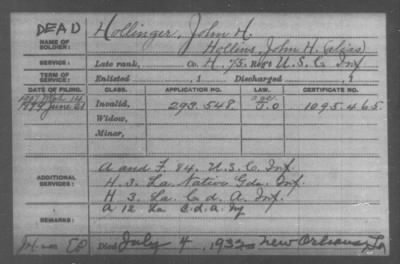 DEAD
NAME OF SOLDIER:
Hollinger, John H.
Hollins, John H. (alias)
SERVICE:
Late rank, Co. H, 75 Reg't U.S.C. Inf
TERM OF SERVICE:
Enlisted , 1 Discharged , 1
DATE OF FILING. CLASS. APPLICATION NO. LAW. CERTIFICATE NO.
1907 Mch 14
June 21 Invalid, 293.548 1095.465
Widow,
Minor,
ADDITIONAL SERVICES:
A and F. 84. U.S.C. Inf.
H. 3. La. Native Gds. Inf.
H 3. La. C. d. A. Inf.
A 12 La C.d.A. Inf
REMARKS:
Died July 4, 1932 New Orleans, La